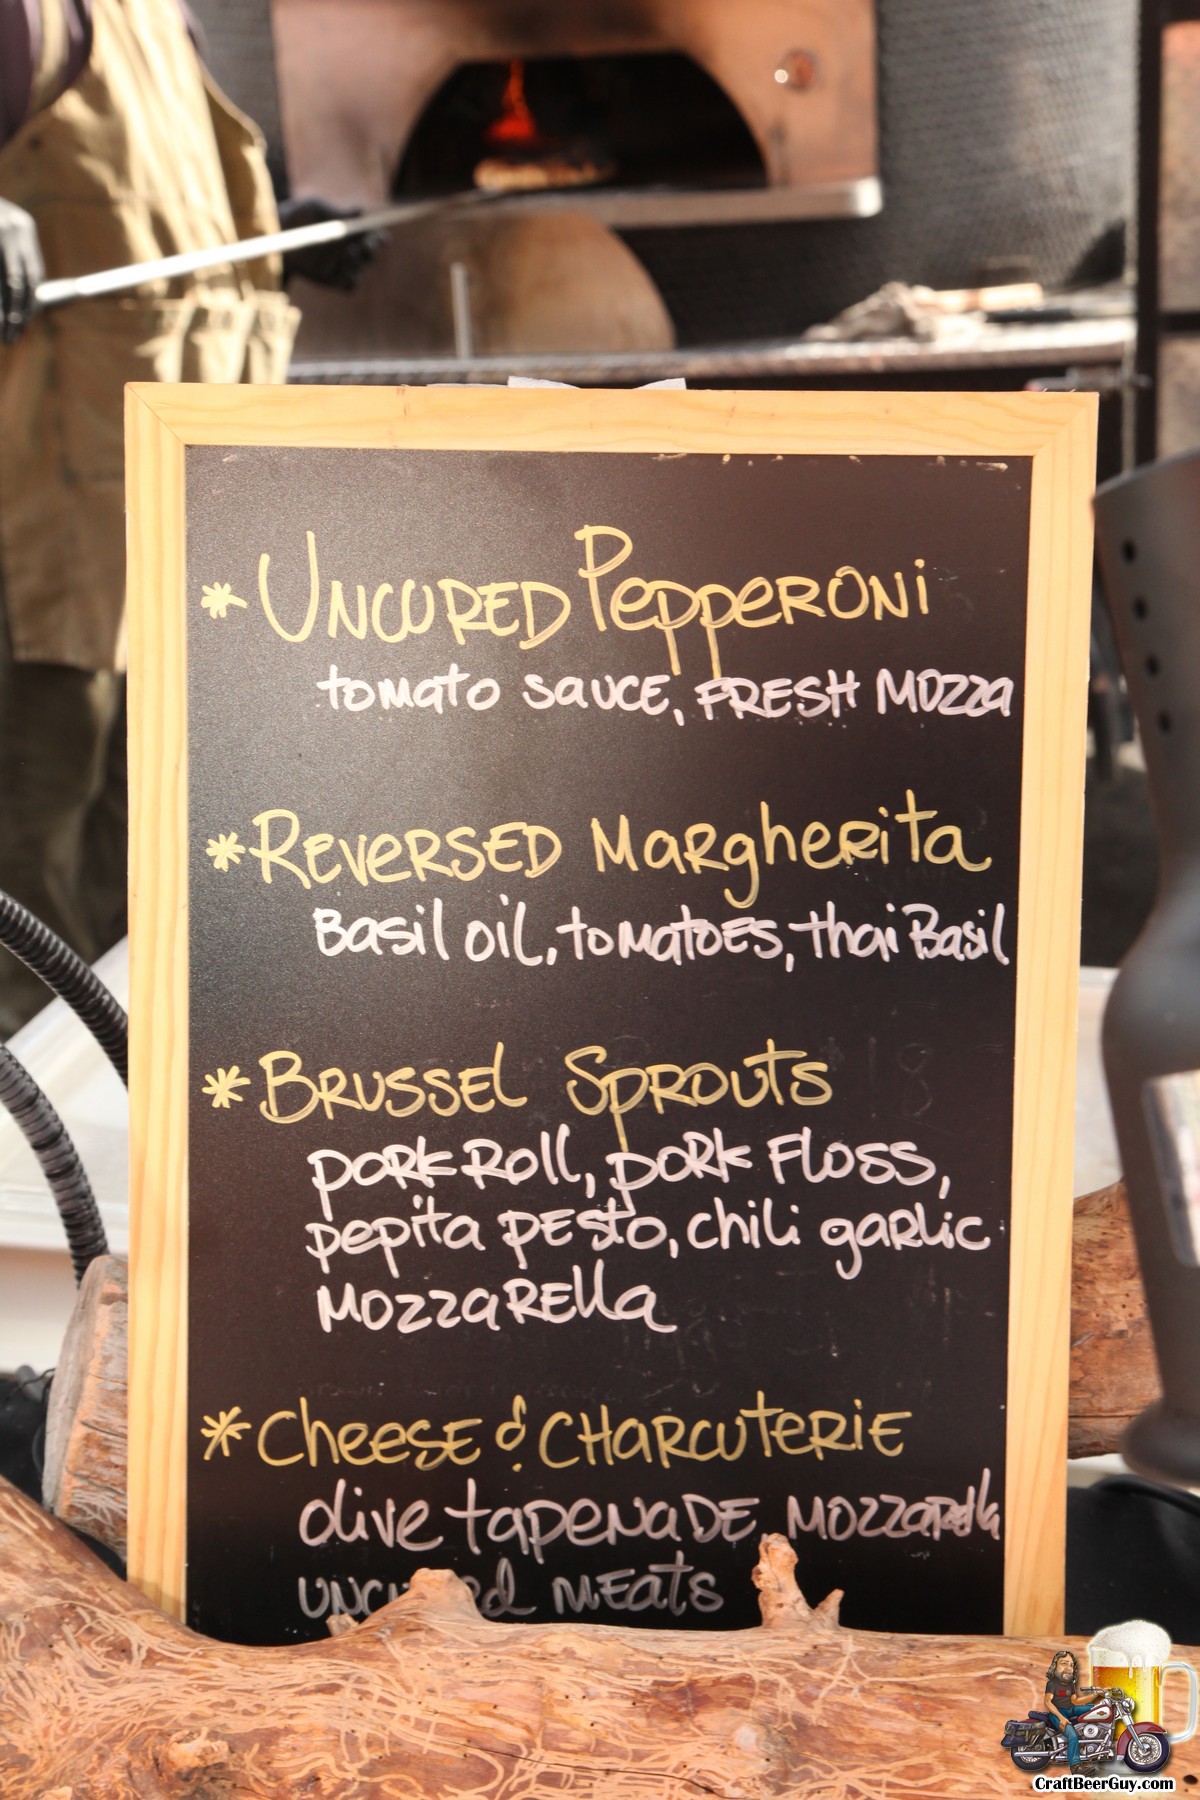 * UNCURED PepperONi
tomato sauce, FRESH MOZZa
* REVERSED MaRgherita
Basil oil, tomatoes, thai Basil
* BRUSSEL SpROUTS
PORK Roll, PORK FLOSS,
pepita pesto, chili garlic
MOZZaRElla
* Cheese & CHaRCUTERiE
olive tapeNaDE, MOZZaRElla
MEats
CraftBeerGuy.com